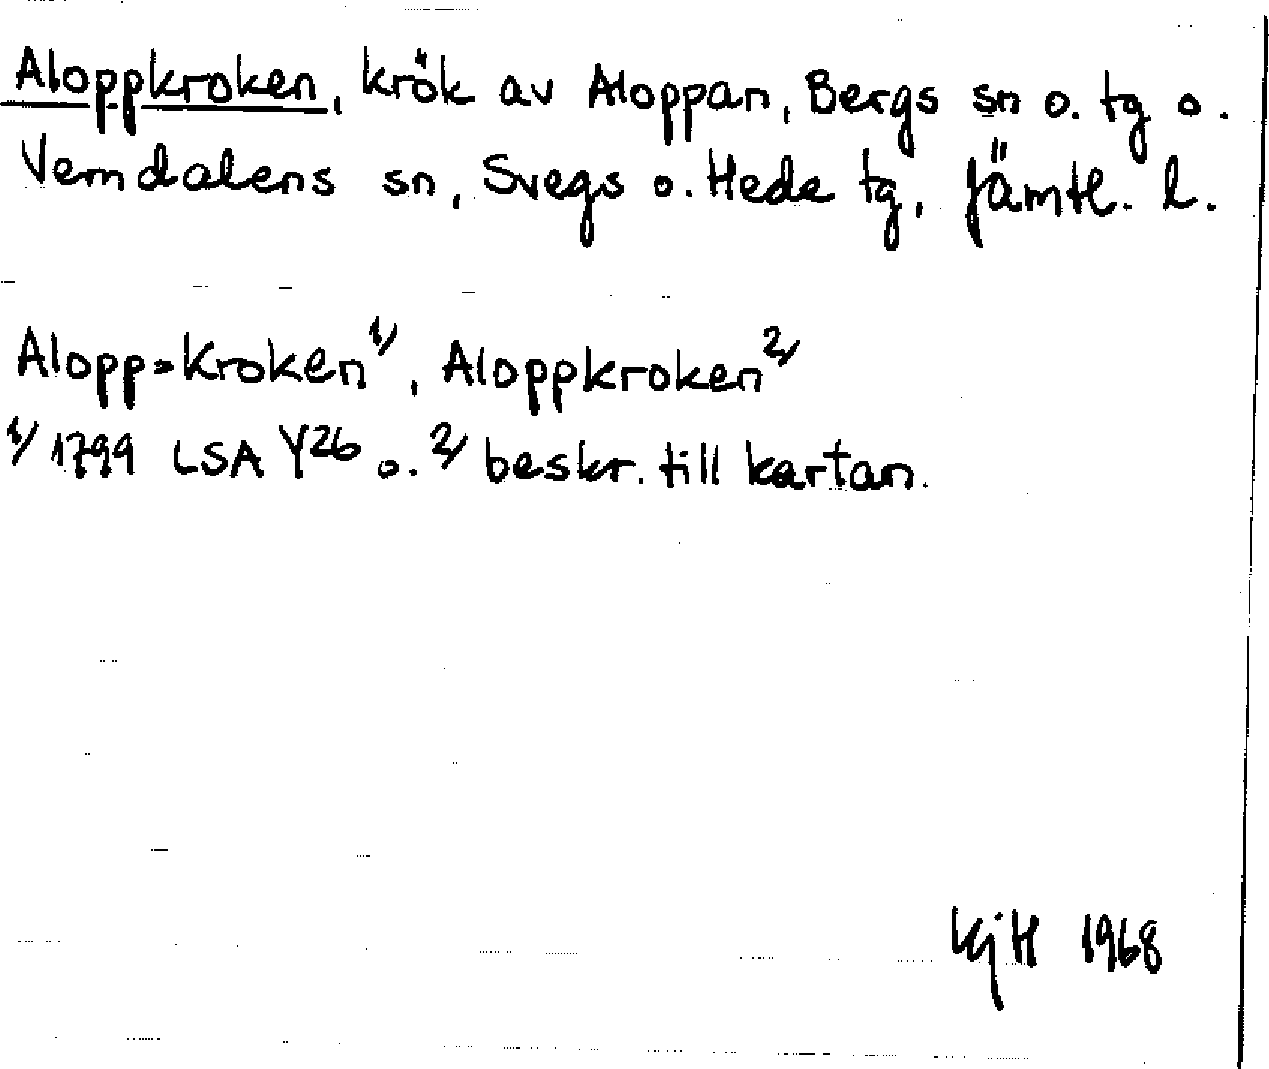 Aloppkroken, krök av Aloppan, Bergs sn o. tg o.
Vemdalens sn, Svegs o. Hede tg, Jämtl. l.
Alopp=Kroken 1/, Aloppkroken 2/
1/ 1799 LSA Y26 o. 2/ beskr. till kartan.
KjH 1968